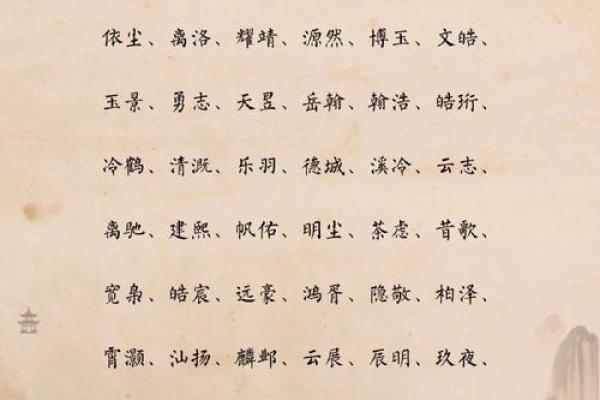 依尘、离洛、耀靖、源然、博玉、文皓、
玉景、勇志、天昱、岳翰、翰浩、皓珩、
冷鹤、清溉、乐羽、德城、溪冷、云志、
离驰、建熙、帆佑、明尘、茶虑、昔歌、
宽枭、皓宸、远豪、鸿胥、隐敬、柏泽、
霄灏、汕扬、麟邺、云展、辰明、玖夜、